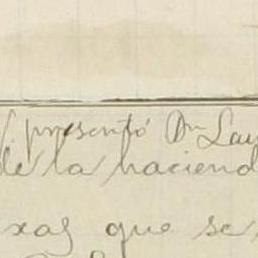 presentó Dn Lau
de la haciend
xas que se